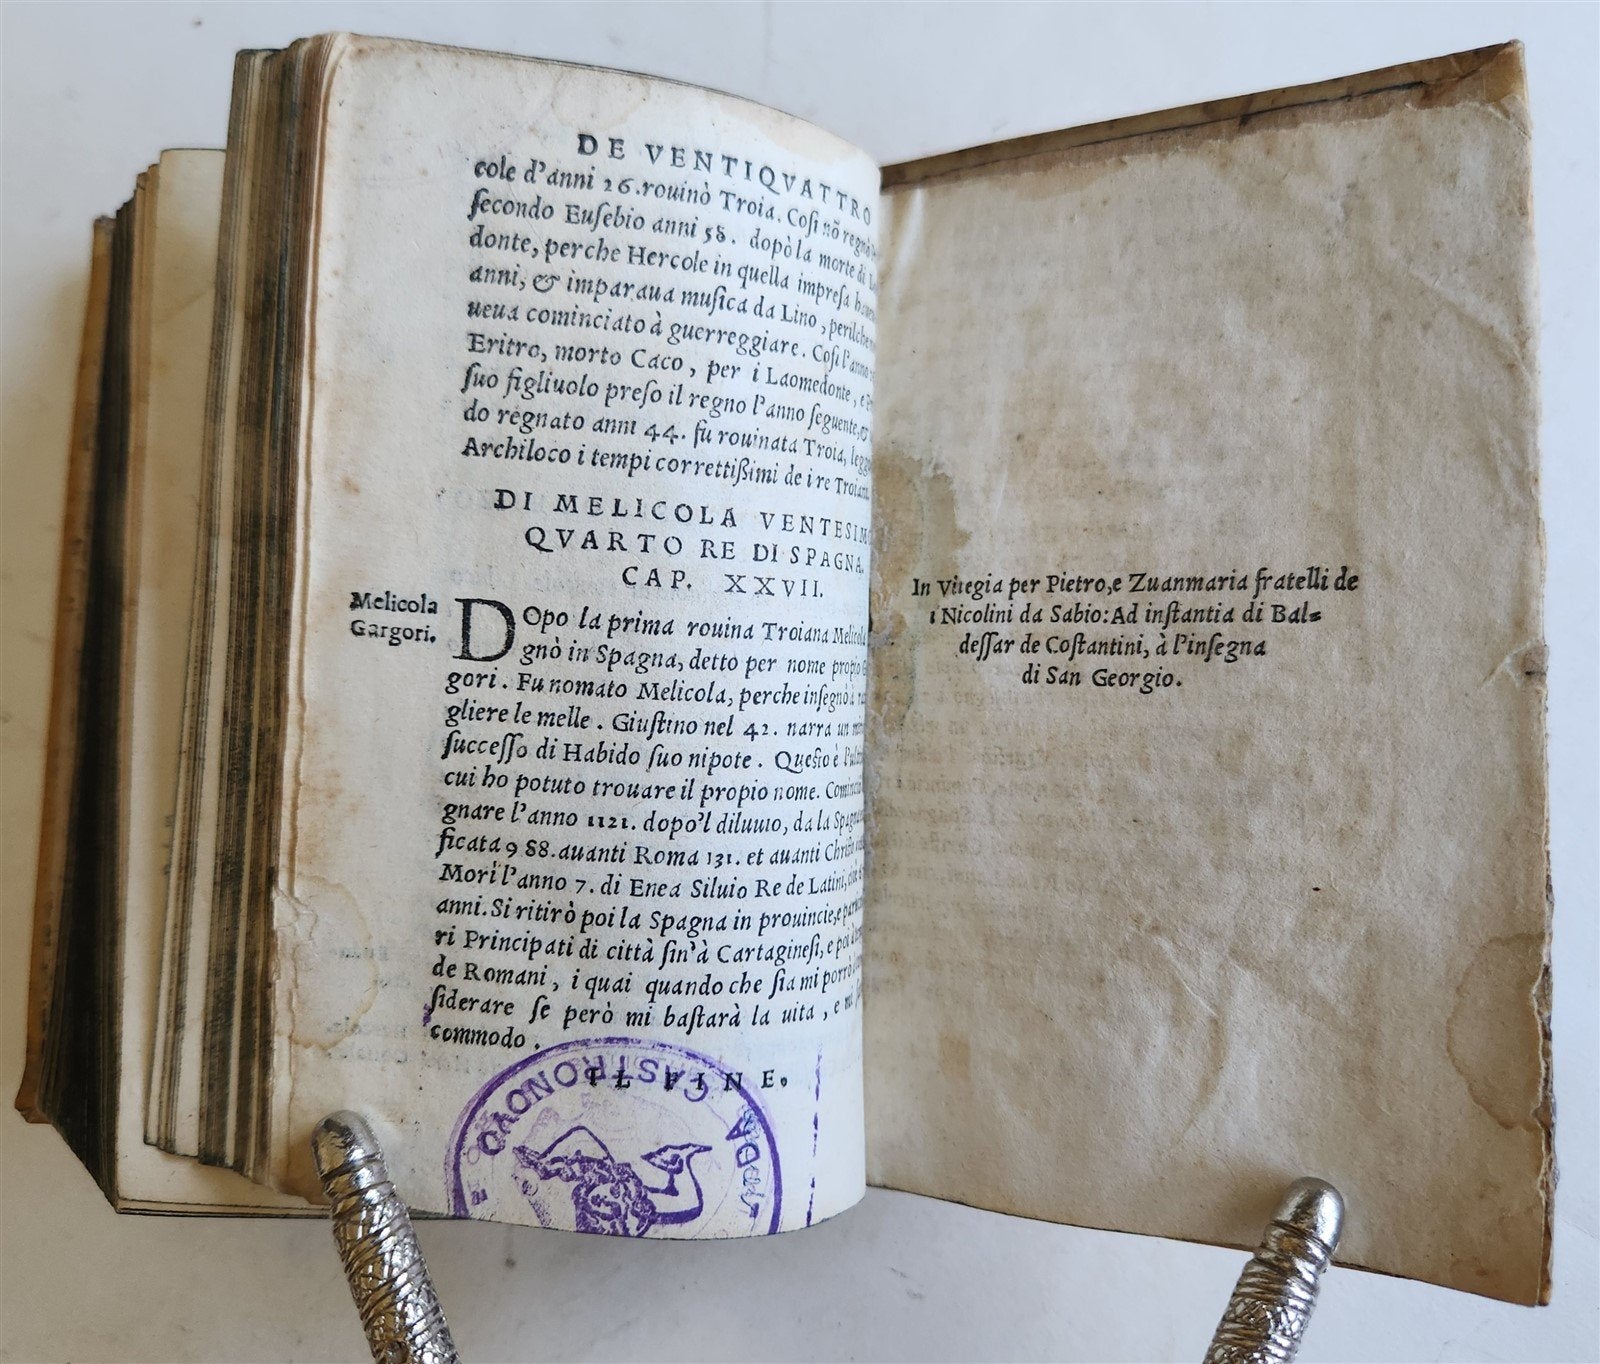 DE VENTIQVATTRO
cole d'anni 26. rouinò Troia. Cosi nõ regnò
secondo Eusebio anni 58. dopò la morte di
donte, perche Hercole in quella impresa
anni, & imparaua musica da Lino, perilche
ueua cominciato à guerreggiare. Cosi l'anno
Eritro, morto Caco, per i Laomedonte, e
suo figliuolo preso il regno l'anno seguente, &
do regnato anni 44. fu rouinata Troia,
Archiloco i tempi correttißimi de i re Troiani.
DI MELICOLA VENTESIM
QVARTO RE DI SPAGNA.
CAP. XXVII.
Melicola
Gargori.
DOpo la prima rouina Troiana Melicola
gnò in Spagna, detto per nome propio
gori. Fu nomato Melicola, perche insegnò à
gliere le melle. Giustino nel 42. narra un
successo di Habido suo nipote. Questo è
cui ho potuto trouare il propio nome.
gnare l'anno 1121. dopo'l diluuio, da la Spagna
ficata 988. auanti Roma 131. et auanti Christo
Morì l'anno 7. di Enea Siluio Re de Latini,
anni. Si ritirò poi la Spagna in prouincie, e
ri Principati di città sin'à Cartaginesi, e poi
de Romani, i quai quando che sia mi porrò
siderare se però mi bastarà la uita, e mi
commodo.
IL FINE.
CASTRONOVO
In Vinegia per Pietro, e Zuanmaria fratelli de
i Nicolini da Sabio: Ad instantia di Bal=
dessar de Costantini, à l'insegna
di San Georgio.